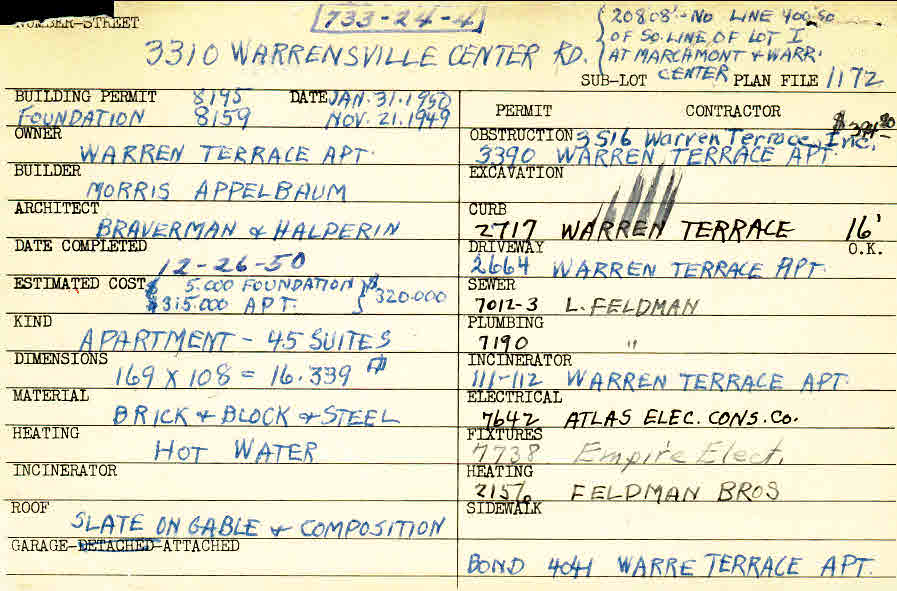 NUMBER-STREET
733-24-4
3310 WARRENSVILLE CENTER RD.
208.08' - NO LINE 400' SO
OF SO. LINE OF LOT I
AT MARCHMONT & WARR.
CENTER
SUB-LOT PLAN FILE 1172
BUILDING PERMIT 8195 DATE JAN. 31. 1950
FOUNDATION 8159 NOV. 21. 1949
OWNER
WARREN TERRACE APT.
BUILDER
MORRIS APPELBAUM
ARCHITECT
BRAVERMAN & HALPERIN
DATE COMPLETED
12-26-50
ESTIMATED COST $ 5.000 FOUNDATION
$315.000 APT. } $320.000
KIND
APARTMENT - 45 SUITES
DIMENSIONS
169 X 108 = 16.339
MATERIAL
BRICK & BLOCK & STEEL
HEATING
HOT WATER
INCINERATOR
ROOF
SLATE ON GABLE & COMPOSITION
GARAGE-DETACHED-ATTACHED
PERMIT CONTRACTOR
OBSTRUCTION 3516 Warren Terrace, Inc.
3390 WARREN TERRACE APT.
EXCAVATION
CURB
2717 WARREN TERRACE 16'
O.K.
DRIVEWAY
2664 WARREN TERRACE APT.
SEWER
7012-3 L. FELDMAN
PLUMBING
7190 "
INCINERATOR
111-112 WARREN TERRACE APT.
ELECTRICAL
7642 ATLAS ELEC. CONS. CO.
FIXTURES
7738 Empire Elect.
HEATING
2156 FELDMAN BROS
SIDEWALK
BOND 4041 WARRE TERRACE APT.